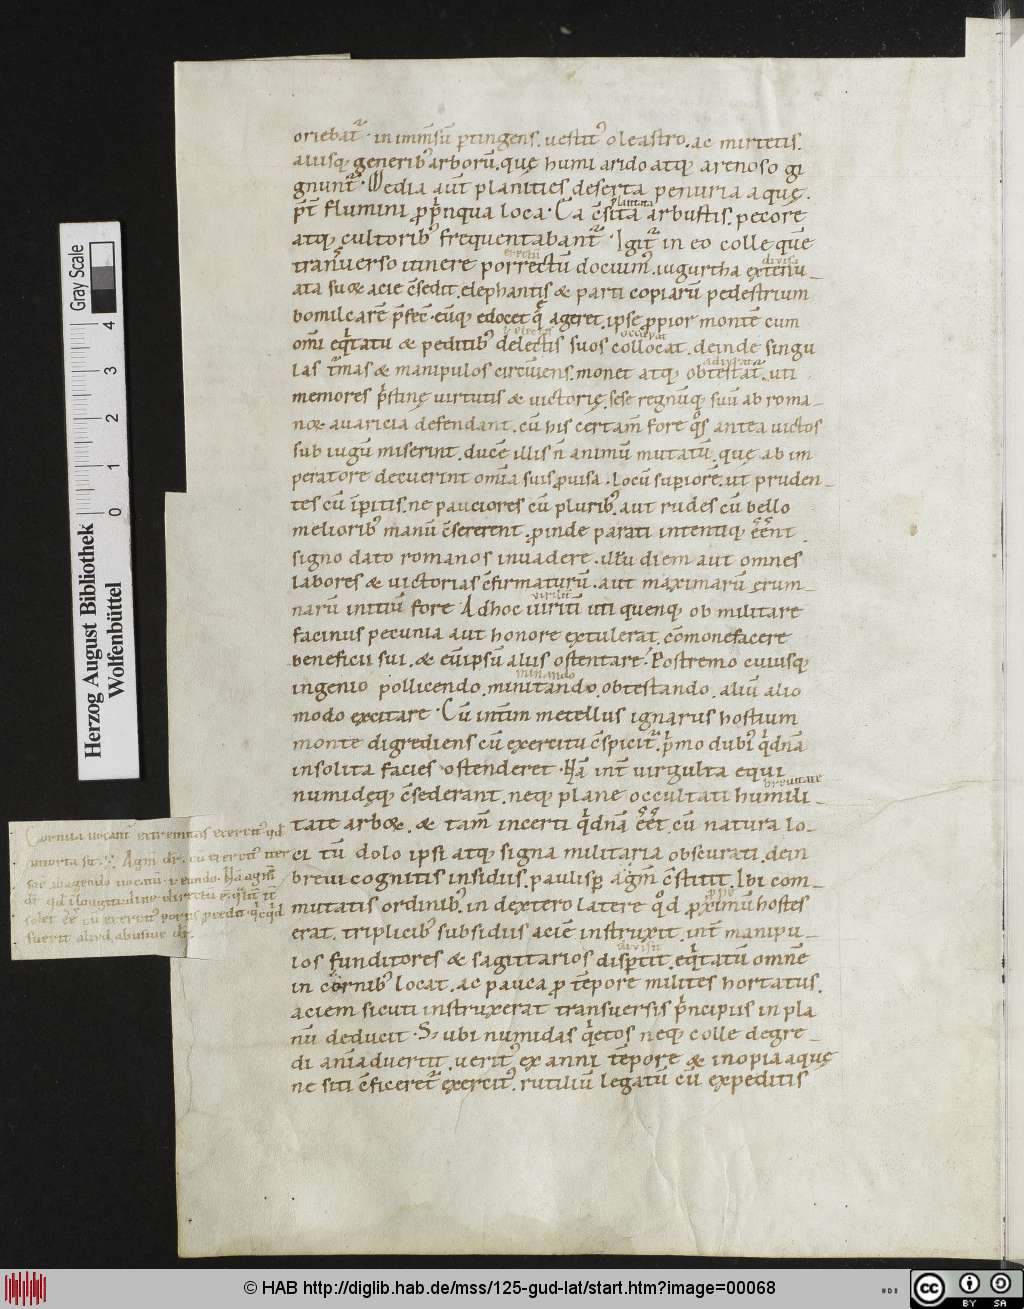 oriebat᷑ · in immēsū ꝑtingens. uestitꝰ oleastro. ac mirtetis.
aliisq; generibꝰ arborū. quę humi arido atq; arenoso gi
gnunt᷑ · Media aūt planities deserta penuria aquę.
p̄t flumini ꝓpīnqua loca · Ea c̄sita arbustis. pecore
plantata
atq; cultoribꝰ frequentabant᷑ · Igit᷑ in eo colle quē
tranuerso itinere porrectū docuimꝰ. iugurtha extenu-
extentū
diuisa
ata suę acie c̄sedit. elephantis & parti copiarū pedestrium
bomilcarē p̄fec̄. eūq; edocet q̄ ageret. ipse ꝓpior montē cum
om̄i eq̇tatu & peditibꝰ delectis suos collocat. deinde singu
& electis
occupat
las t᷑mas & manipulos circūiens. monet atq; obtestat᷑. uti
adiurat᷑
memores ṗstinę uirtutis & uictorię. sese regnūq; suū ab roma-
noꝝ auaricia defendant. cū his certam̄ fore q̊s antea uictos
sub iugū miserint. ducē illis n̄ animū mutatū. quę ab im
peratore decuerint om̄ia suis ꝓuisa. locū supiorē. ut pruden-
tes cū īpitis. ne pauciores cū pluribꝰ. aut rudes cū bello
melioribꝰ manū c̄sererent. ꝓinde parati intentiq; eēnt
signo dato romanos inuadere. illū diem aut omnes
labores & uictorias c̄firmaturū. aut maximarū ęrum-
narū initiū fore Ad hoc uiritī uti quenq; ob militare
virilit̄
facinus pecunia aut honore extulerat. cōmonefacere
beneficii sui. & eūipsū aliis ostentare. Postremo cuiusq;
ingenio pollicendo. minitando. obtestando. aliū alio
minando
modo excitare · Cū intīm metellus ignarus hostium
monte digrediens cū exercitu c̄spicit᷑. ṗmo dubꝰ q̇dnā
insolita facies ostenderet · Nā int̄ uirgulta equi
numidęq; c̄sederant. neq; plane occultati humili-
breuitate
tate arboꝝ. & tam̄ incerti q̇dnā eēt. cū natura lo-
ci tū dolo ipsi atq; signa militaria obscurati. dein
breui cognitis insidiis. paulisꝑ agm̄ c̄stitit. Ibi com-
mutatis ordinibꝰ. in dextero latere q̇d ꝓximū hostes
erat. triplicibꝰ subsidiis aciē instruxit. int̄ manipu-
los funditores & sagittarios disꝑtit. eq̇tatū omnē
diuisit
in cornibꝰ locat. ac pauca ꝓ tēpore milites hortatus.
aciem sicuti instruxerat transuersis ṗncipiis in pla
nū deducit · S; ubi numidas q̇etos neq; colle degre-
di anīaduertit. ueritꝰ ex anni tēpore & inopia aquę
ne siti c̄ficeret᷑ exercitꝰ. rutiliū legatū cū expeditis
Cornua uocant᷑ extremitas exercitꝰ qd
intorta sit. Agm̄ dr̄. cū exercitꝰ iter
Herzog August Bibliothek
Wolfenbüttel
Gray Scale
0 1 2 3 4
© HAB http://diglib.hab.de/mss/125-gud-lat/start.htm?image=00068
HAB
cc BY SA